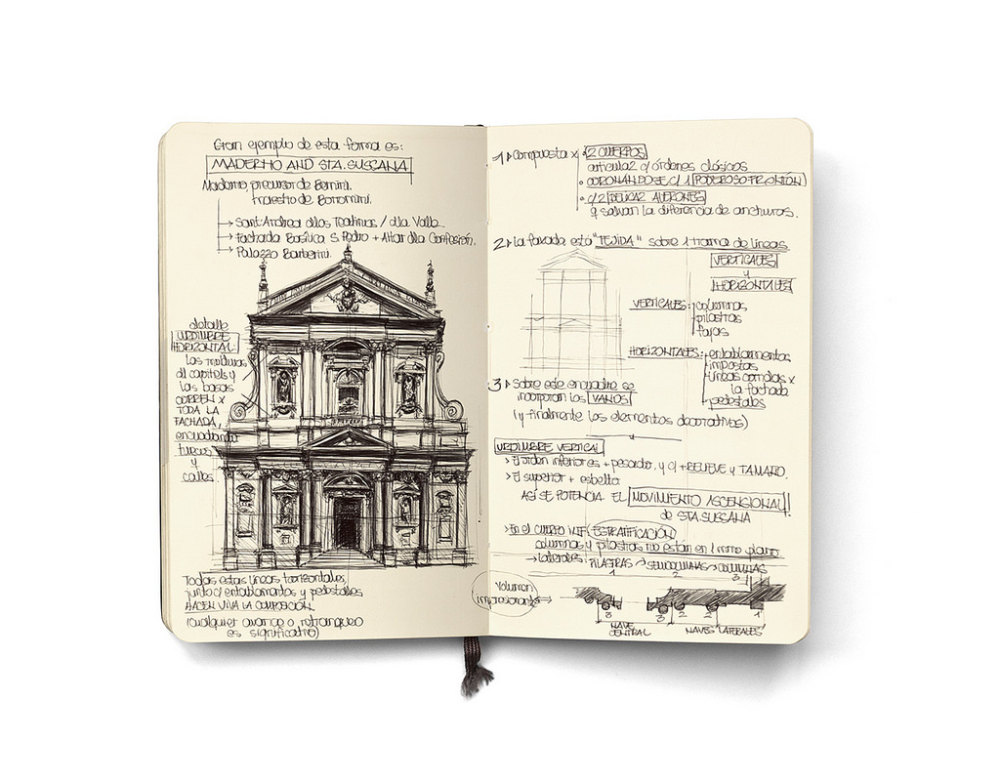 Gran ejemplo de esta forma es:
MADERNO AND STA. SUSCANA
Maderno precursor de Bernini.
maestro de Borromini.
Sant'Andrea dllos Teatinos / dlla Valle.
Fachada Basílica S. Pedro + Altar dlla Confesión.
Palazzo Barberini.
detalle
URDIMBRE
HORIZONTAL
las molduras
dl capitel y
las basas
CORREN X
TODA LA
FACHADA,
encuadrando
huecos
y
calles.
Todas estas líneas horizontales,
junto c/ entablamentos y pedestales
HACEN VIVA LA COMPOSICIÓN.
(cualquier avance o retranqueo
es significativo)
1 Compuesta x 2 CUERPOS
articula2 c/ órdenes clásicos
CORONANDOSE C/ 1 PODEROSO FRONTÓN
c/2 DELICA2 ALERONES
q salvan la diferencia de anchuras.
2 La faxada está "TEJIDA" sobre 1 trama de líneas
VERTICALES
y
HORIZONTALES
VERTICALES: columnas
pilastras
fajas
HORIZONTALES: entablamentos
impostas
líneas corridas x
la fachada
pedestales
3 Sobre este encuadre se
incorporan los VANOS
(y finalmente los elementos decorativos)
URDIMBRE VERTICAL
El orden inferior es + pesado, y c/ + RELIEVE y TAMAÑO.
El superior + esbelto
ASÍ SE POTENCIA EL MOVIMIENTO ASCENSIONAL
de STA. SUSCANA
En el CUERPO INF. ESTRATIFICACIÓN
columnas y pilastras no están en 1 mmo plano
laterales: PILASTRAS SEMICOLUMNAS COLUMNAS
1 2 3
Volumen
impresionante
3 3 2 2 1
NAVE
CENTRAL
NAVES LATERALES